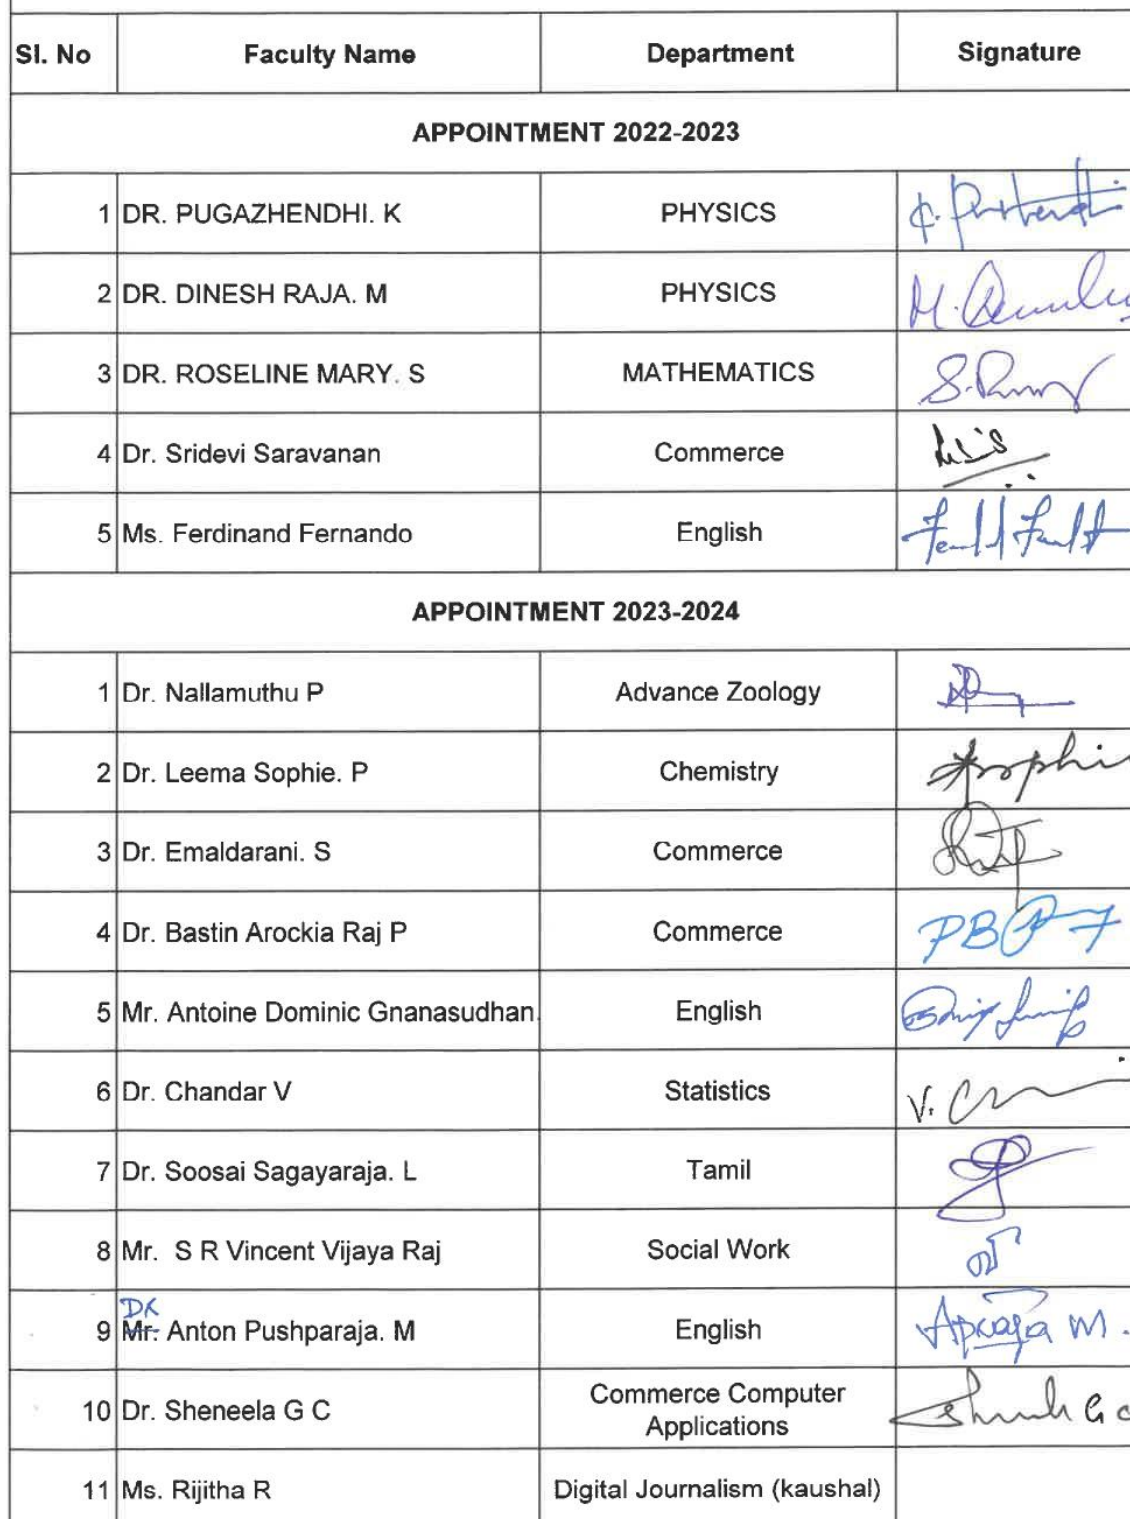 Sl. No Faculty Name Department Signature
APPOINTMENT 2022-2023
1 DR. PUGAZHENDHI. K PHYSICS
2 DR. DINESH RAJA. M PHYSICS
3 DR. ROSELINE MARY. S MATHEMATICS
4 Dr. Sridevi Saravanan Commerce
5 Ms. Ferdinand Fernando English
APPOINTMENT 2023-2024
1 Dr. Nallamuthu P Advance Zoology
2 Dr. Leema Sophie. P Chemistry
3 Dr. Emaldarani. S Commerce
4 Dr. Bastin Arockia Raj P Commerce
5 Mr. Antoine Dominic Gnanasudhan. English
6 Dr. Chandar V Statistics
7 Dr. Soosai Sagayaraja. L Tamil
8 Mr. S R Vincent Vijaya Raj Social Work
DR
9 Mr. Anton Pushparaja. M English
10 Dr. Sheneela G C Commerce Computer
Applications
11 Ms. Rijitha R Digital Journalism (kaushal)